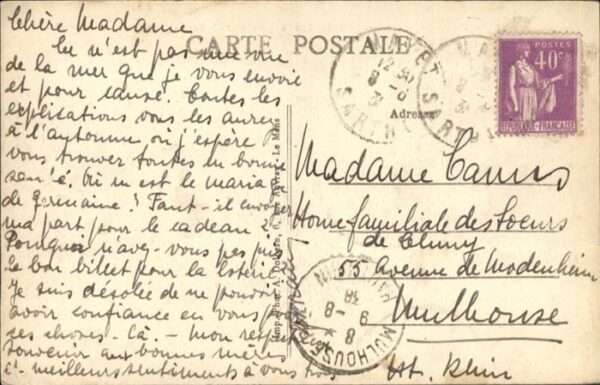 Chère Madame
Ce n'est pas une vue
de la mer que je vous envoie
et pour cause. Toutes les
explications vous les aurez
à l'automne où j'espère
vous trouver toutes en bonne
santé. Où en est le mariage
de Germaine? Faut-il envoyer
ma part pour le cadeau?
Pourquoi n'avez-vous pas pris
le bon billet pour la loterie
Je suis désolée de ne pouvoir
avoir confiance en vous pour
ces choses. Là. - mon respectueux
souvenir aux bonnes mères
et meilleurs sentiments à vous tous
CARTE POSTALE
Adresse
POSTES
40c
REPUBLIQUE FRANÇAISE
12 30
8 - 8
SARTHE
SARTHE
Le Mans
Madame Camus
Home familiale des Soeurs
de Cluny
55 avenue de Modenheim
Mulhouse
Ht. Rhin
MULHOUSE
HAUT-RHIN
9 - 8
38